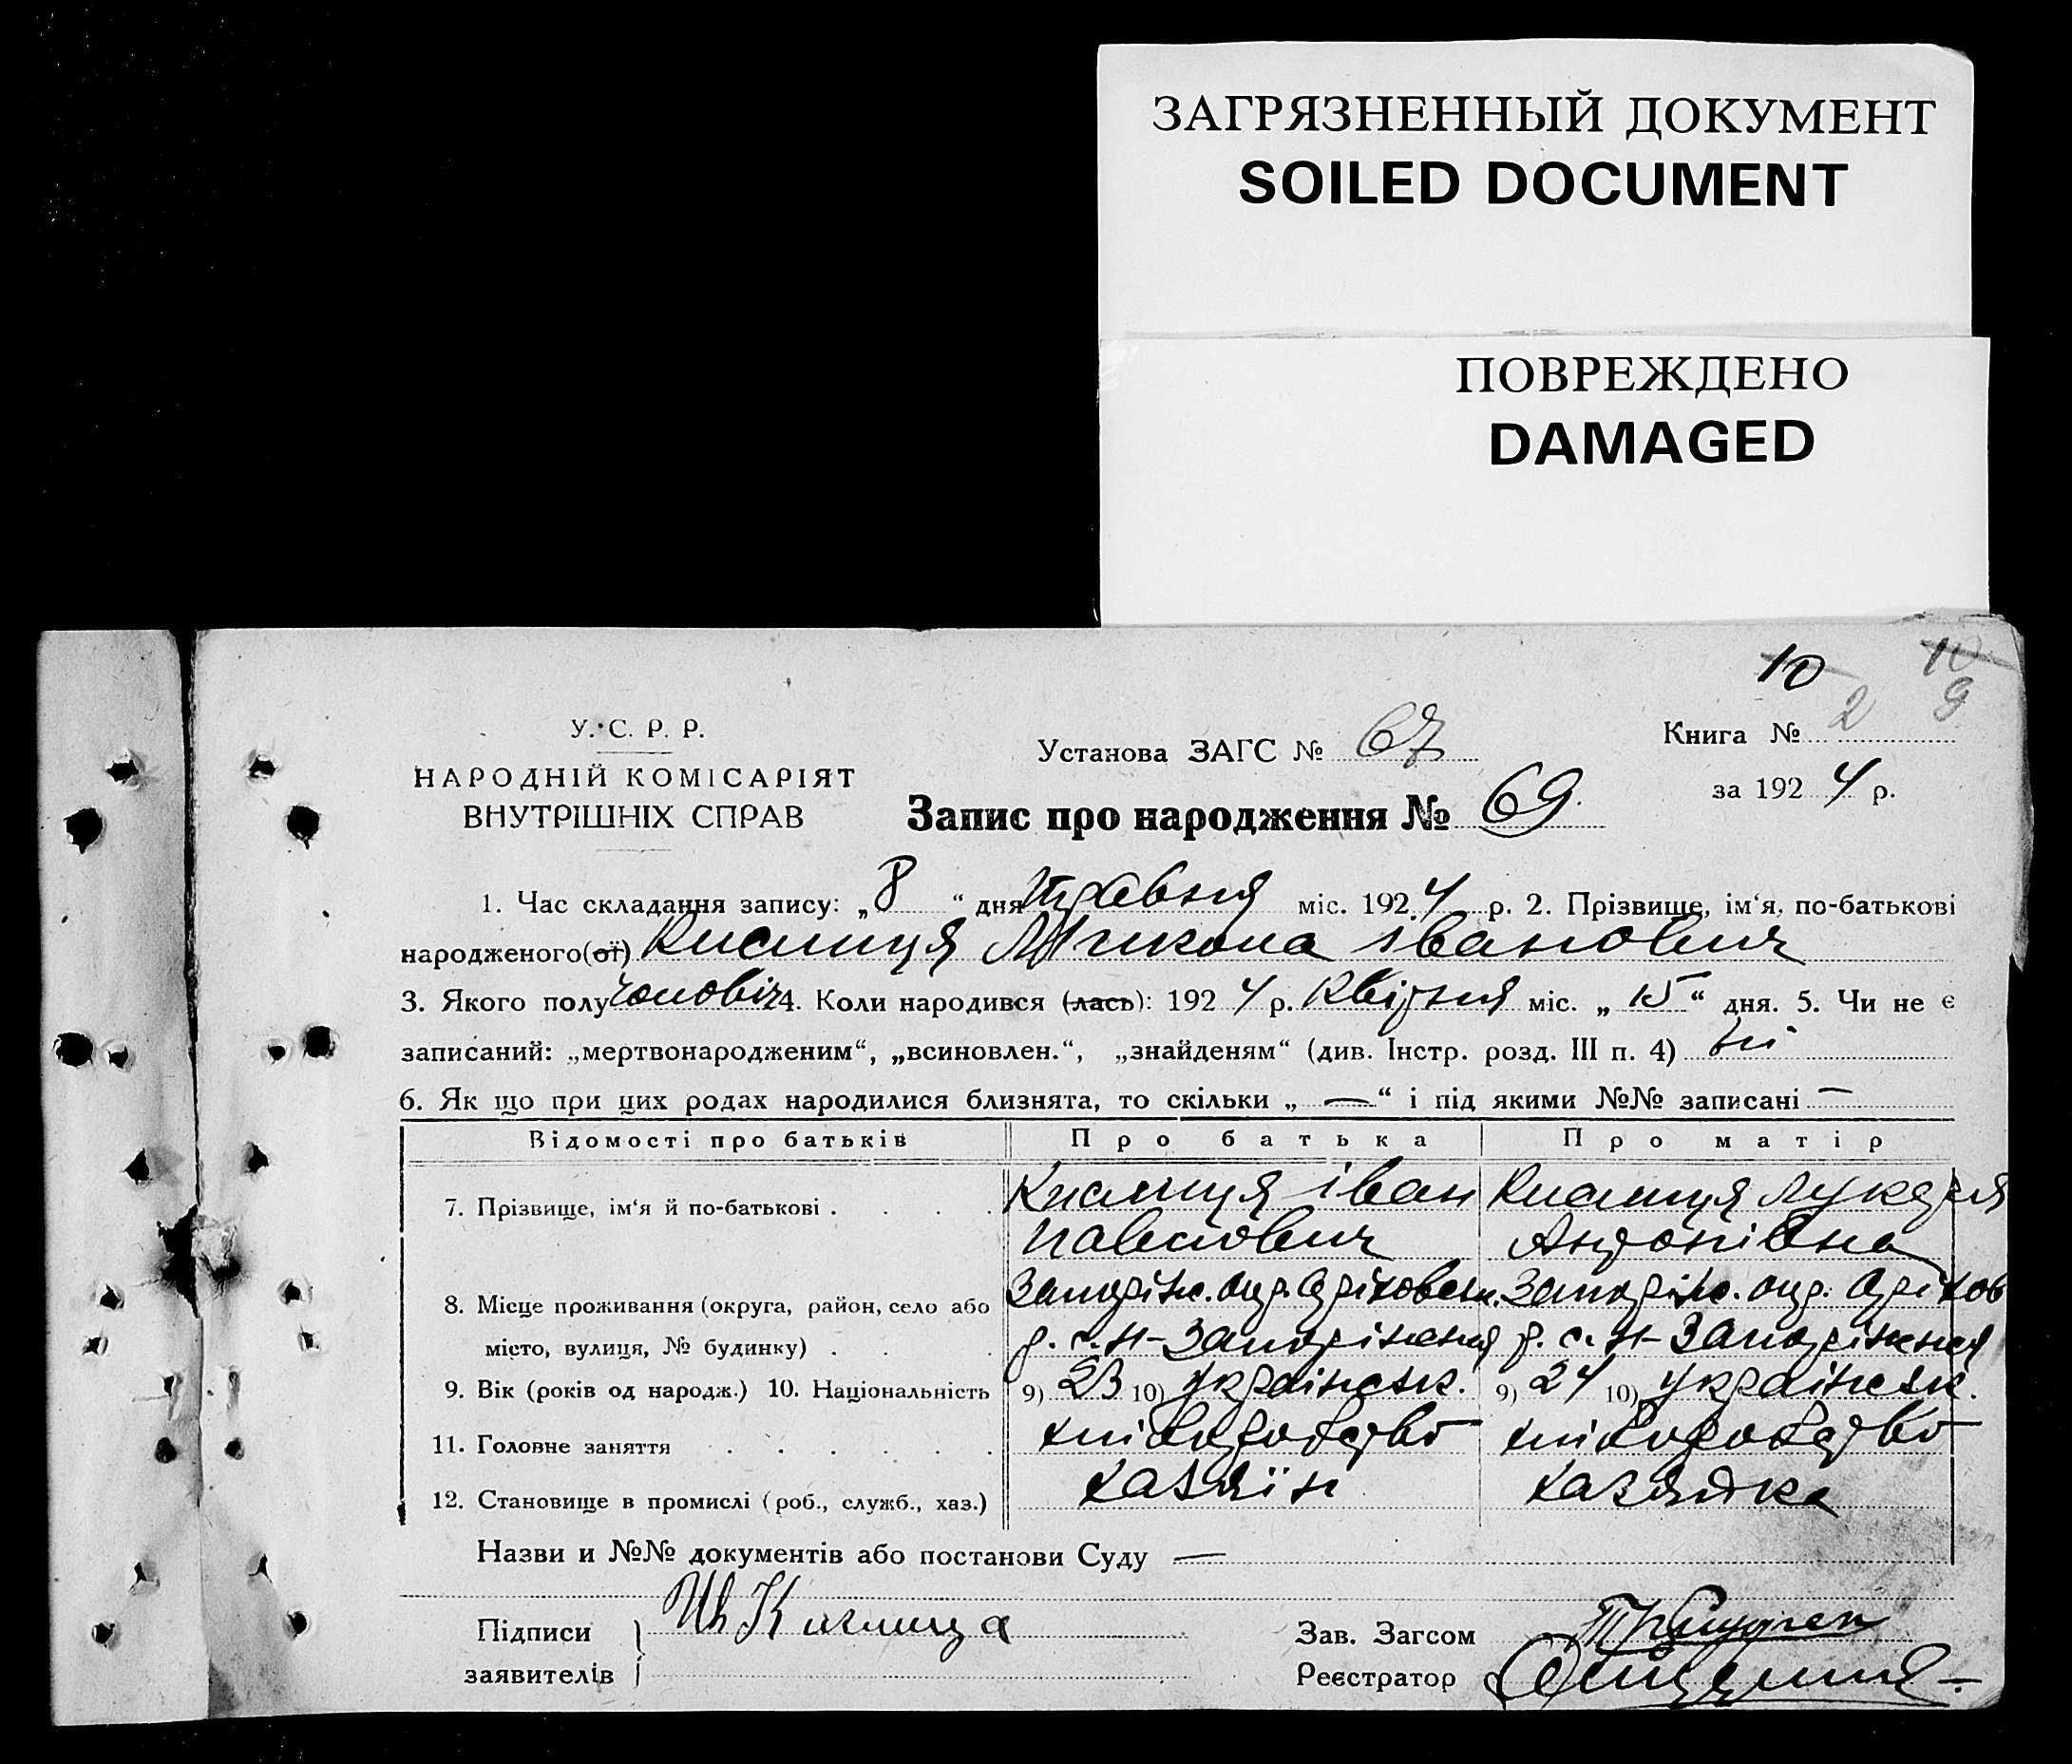 ЗАГРЯЗНЕННЫЙ ДОКУМЕНТ
SOILED DOCUMENT
ПОВРЕЖДЕНО
DAMAGED
10 10
9
У. С. Р. Р.
НАРОДНІЙ КОМІСАРІЯТ
ВНУТРІШНІХ СПРАВ
Установа ЗАГС № 67
Книга № 2
за 1924 р.
Запис про народження № 69
1. Час складання запису: „8“ дня Травня міс. 1924 р. 2. Прізвище, ім‘я, по-батькові
народженого(ої) Кислиця Микола Іванович
3. Якого полу чоловіч 4. Коли народився (лась): 1924 р. Квітня міс. „15“ дня. 5. Чи не є
записаний: „мертвонародженим“, „всиновлен.“, „знайденям“ (див. Інстр. розд. III п. 4) ні
6. Як що при цих родах народилися близнята, то скільки „—“ і під якими №№ записані —
Відомості про батьків Про батька Про матір
7. Прізвище, ім‘я й по-батькові . . . . Кислиця Іван Кислиця Лукерія
Павлович Антонівна
8. Місце проживання (округа, район, село або Запоріж. окр. Оріховськ. Запоріж. окр. Оріхов
місто, вулиця, № будинку) . . . р. с. Н-Запоріжжя р. с. Н-Запоріжжя
9. Вік (років од народж.) 10. Національність 9) 23 10) Українськ. 9) 24 10) Українськ.
11. Головне заняття . . . . . хліборобство хліборобство
12. Становище в промислі (роб., служб., хаз.) хазяїн хазяйка
Назви и №№ документів або постанови Суду —
Підписи Ив Кислица
заявителів
Зав. Загсом
Реєстратор